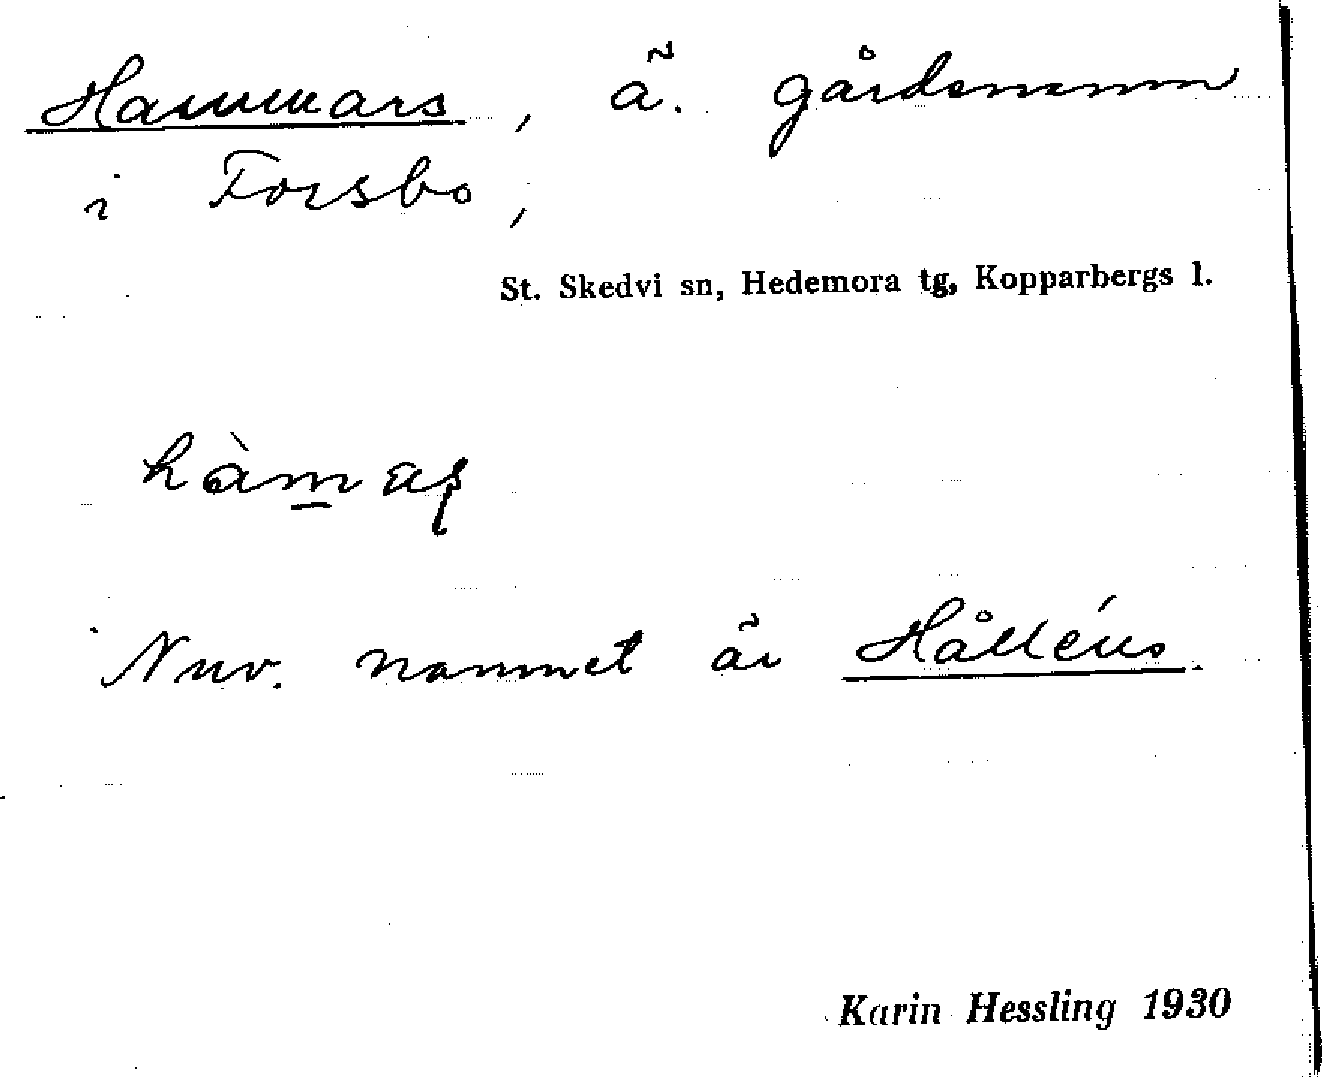 Hammars, ä. gårdsnamn
i Forsbo,
St. Skedvi sn, Hedemora tg, Kopparbergs l.
hàmaş
Nuv. namnet är Hålléns.
Karin Hessling 1930